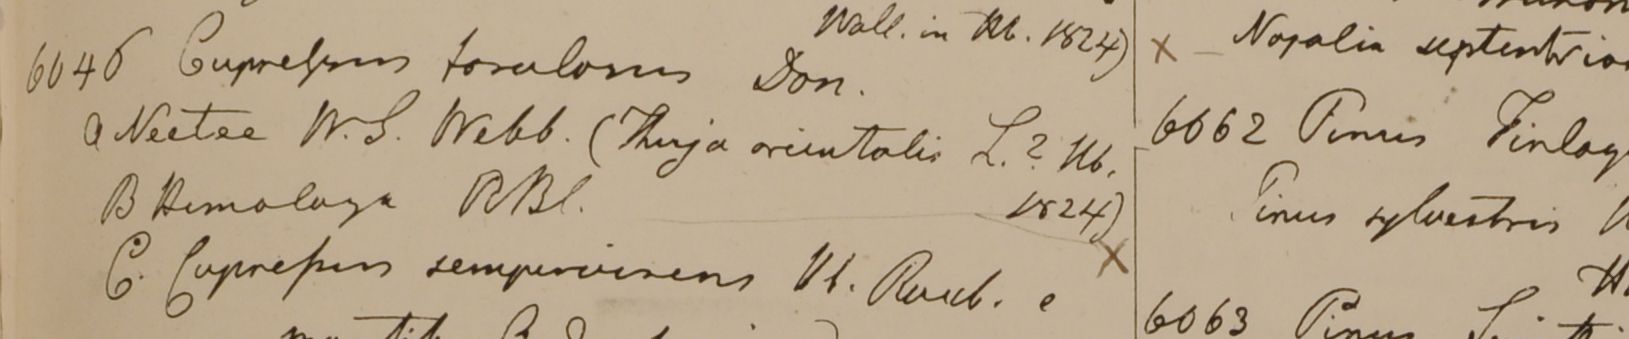 Wall. in Hb. 1824)
6046 Cupressus torulosus Don.
a Neetee W.S. Webb. (Thuja orientalis L.? Hb. 1824)
B Himalaya RBl.
C. Cupressus sempervirens Hb. Roxb. e
x – Nopalia septentrio
6062 Pinus Finlay
Pinus sylvestris
6063 Pinus